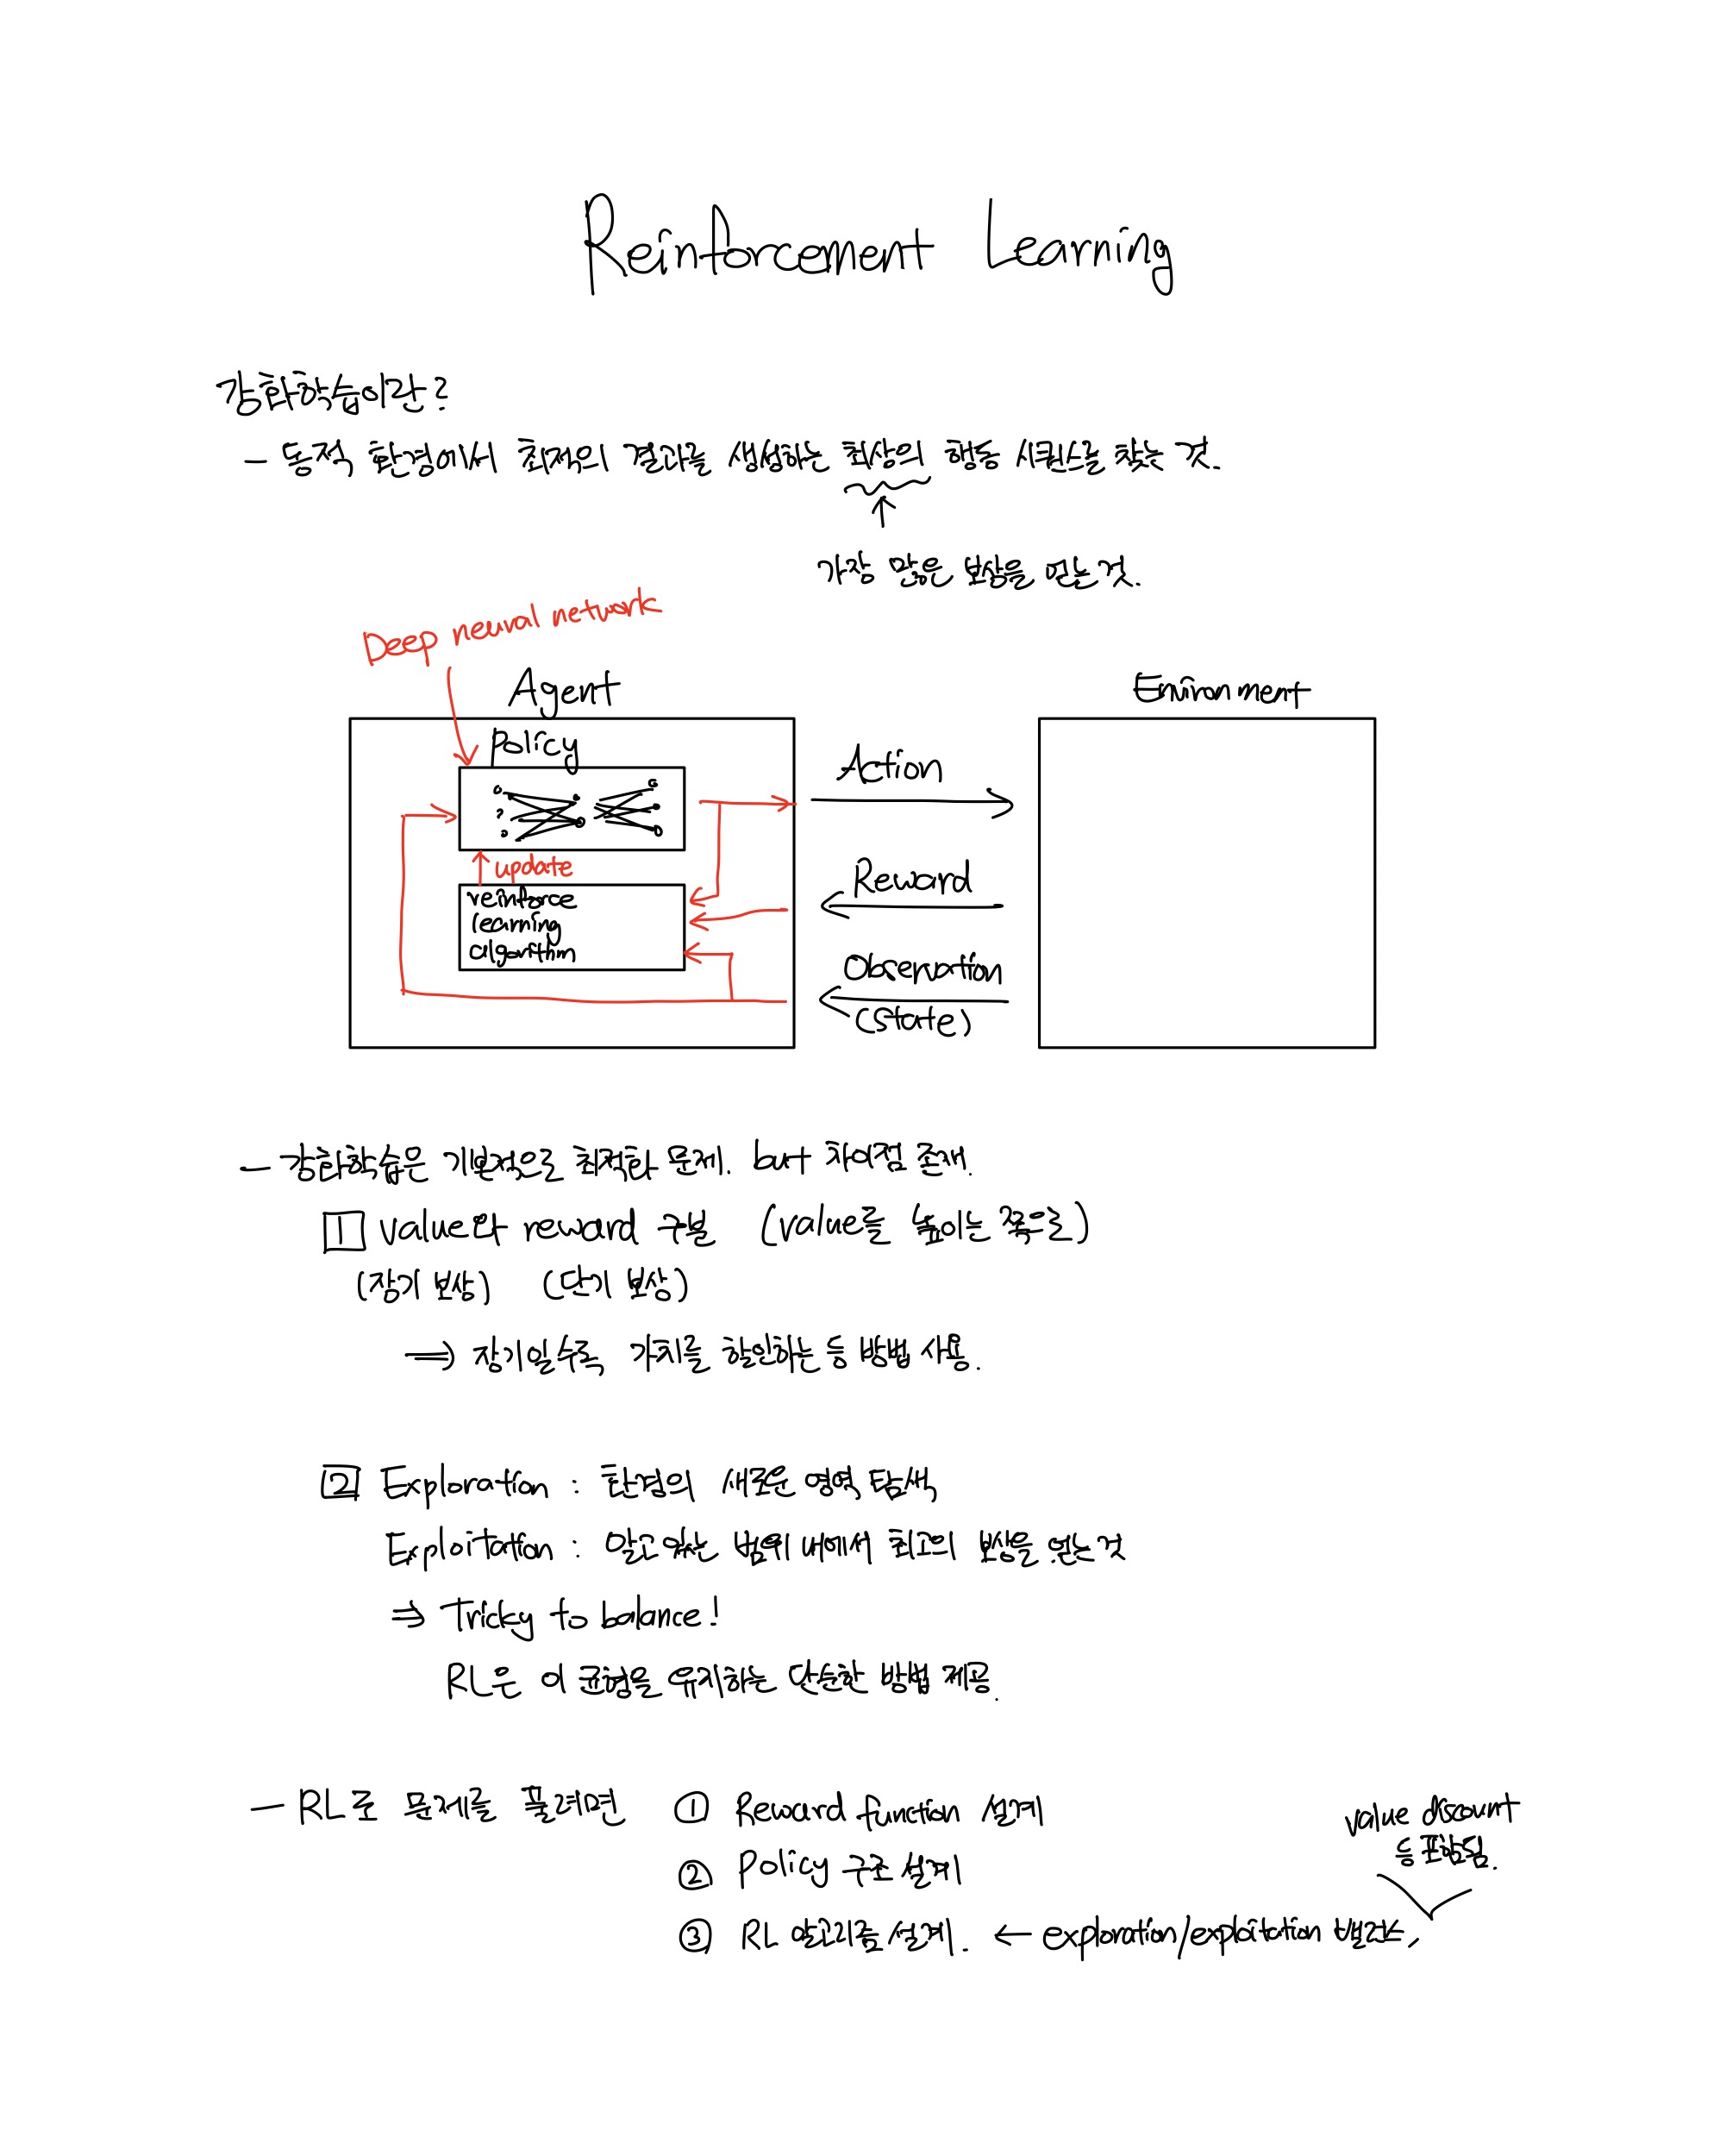 Reinforcement Learning
강화학습이란?
- 동적 환경에서 최적의 결과를 생성하는 최상의 행동 시퀀스를 찾는 것.
↑
가장 많은 보상을 얻는것.
Deep neural network
Agent
Environment
Policy
Action
update
reinforce
learning
algorithm
Reward
Observation
(state)
- 강화학습은 기본적으로 최적화 문제. but 차이점 존재.
1 value와 reward 구분 (value를 높이는 쪽으로)
(장기 보상) (단기 보상)
⇒ 장기일수록 가치를 할인하는 등 방법 사용.
2 Exploration : 환경의 새로운 영역 탐색
Exploitation : 알고 있는 범위 내에서 최고의 보상을 얻는 것
⇒ Tricky to balance!
RL은 이 균형을 유지하는 단순한 방법 제공.
- RL로 문제를 풀려면 ① Reward function 설계
② Policy 구조 설계
value discount
등 포함됨.
③ RL 알고리즘 설계. ← exploration/exploitation 밸런스,